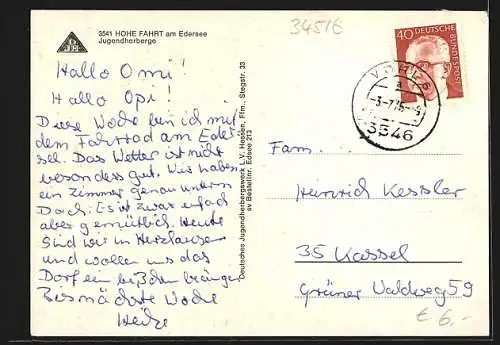 34516
3541 HOHE FAHRT am Edersee
Jugendherberge
DJH
40 DEUTSCHE BUNDESPOST
VÖHL
a
-3-7.75-
3546
Hallo Omi!
Hallo Opi!
Diese Woche bin ich mit
dem Fahrrad am Eder-
see. Das Wetter ist nicht
besonders gut. Wir haben
ein Zimmer genau unterm
Dach. Es ist zwar einfach
aber gemütlich. Heute
sind wir in Herzhausen
und wollen uns das
Dorf ein bißchen
Bis nächste Woche
Heike
Deutsches Jugendherbergswerk L.V. Hessen, Ffm., Stegstr. 33
sv Bestellnr. Edsee 213
Fam.
Heinrich Kessler
35 Kassel
Grüner Waldweg 59
€ 6,-